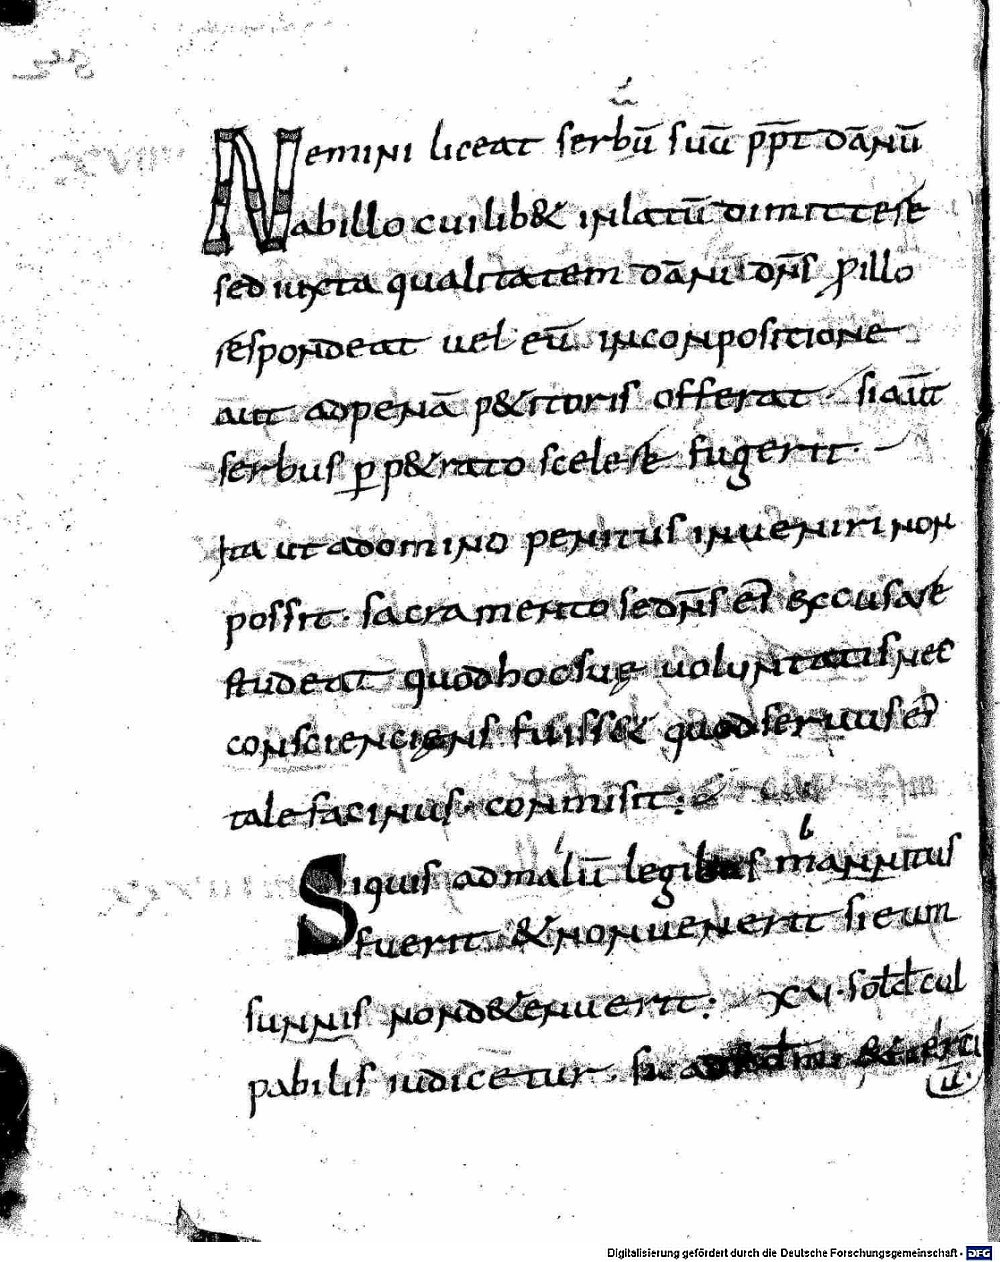 Nemini liceat serbū suū pp̄t dāṇū
abillo cuilib& inlatū dimittere
sed iuxta qualitatem dāni dn̄s ꝓ illo
respondeat uel eū inconpositione
aut ad penā p&itoris offerat · si aūt
serbus ꝑ p&rato scelere fugerit ·
Ita ut adomino penitus inueniri non
possit · sacramento sedn̄s ei' excusare
studeat quod hoc suę uoluntatis nec
conscienci fuiss& quod seruus ei'
tale facinus conmisit ·
Siquis ad malū legibus mannitus
fuerit & non uenerit si eum
sunnis non d&enuerit · xu · sold cul
pabilis iudicetur · 
Digitalisierung gefördert durch die Deutsche Forschungsgemeinschaft - DFG